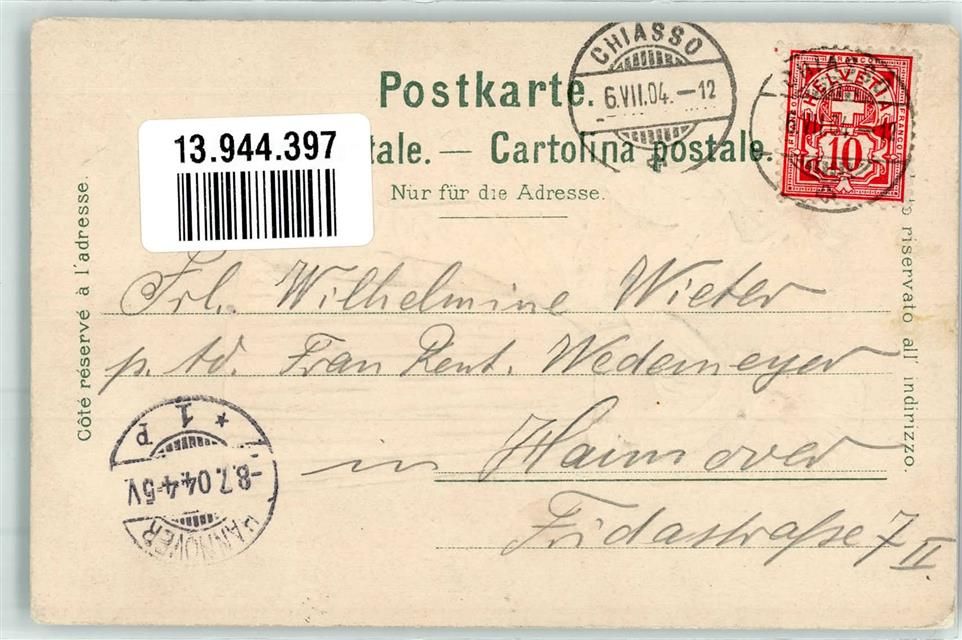 CHIASSO
6.VII.04.–12
FRANCO
CHIASSO
HELVETIA
FRANCO
FRANCO
10
Postkarte.
13.944.397
tale. — Cartolina postale.
Nur für die Adresse.
Côté réservé à l'adresse.
riservato all' indirizzo.
Frl. Wilhelmine Wieter
p. ad. Frau Rent. Wedemeyer
in Hannover
Fridastraße 7 II
HANNOVER
-8.7.04.4-5V
* 1 p